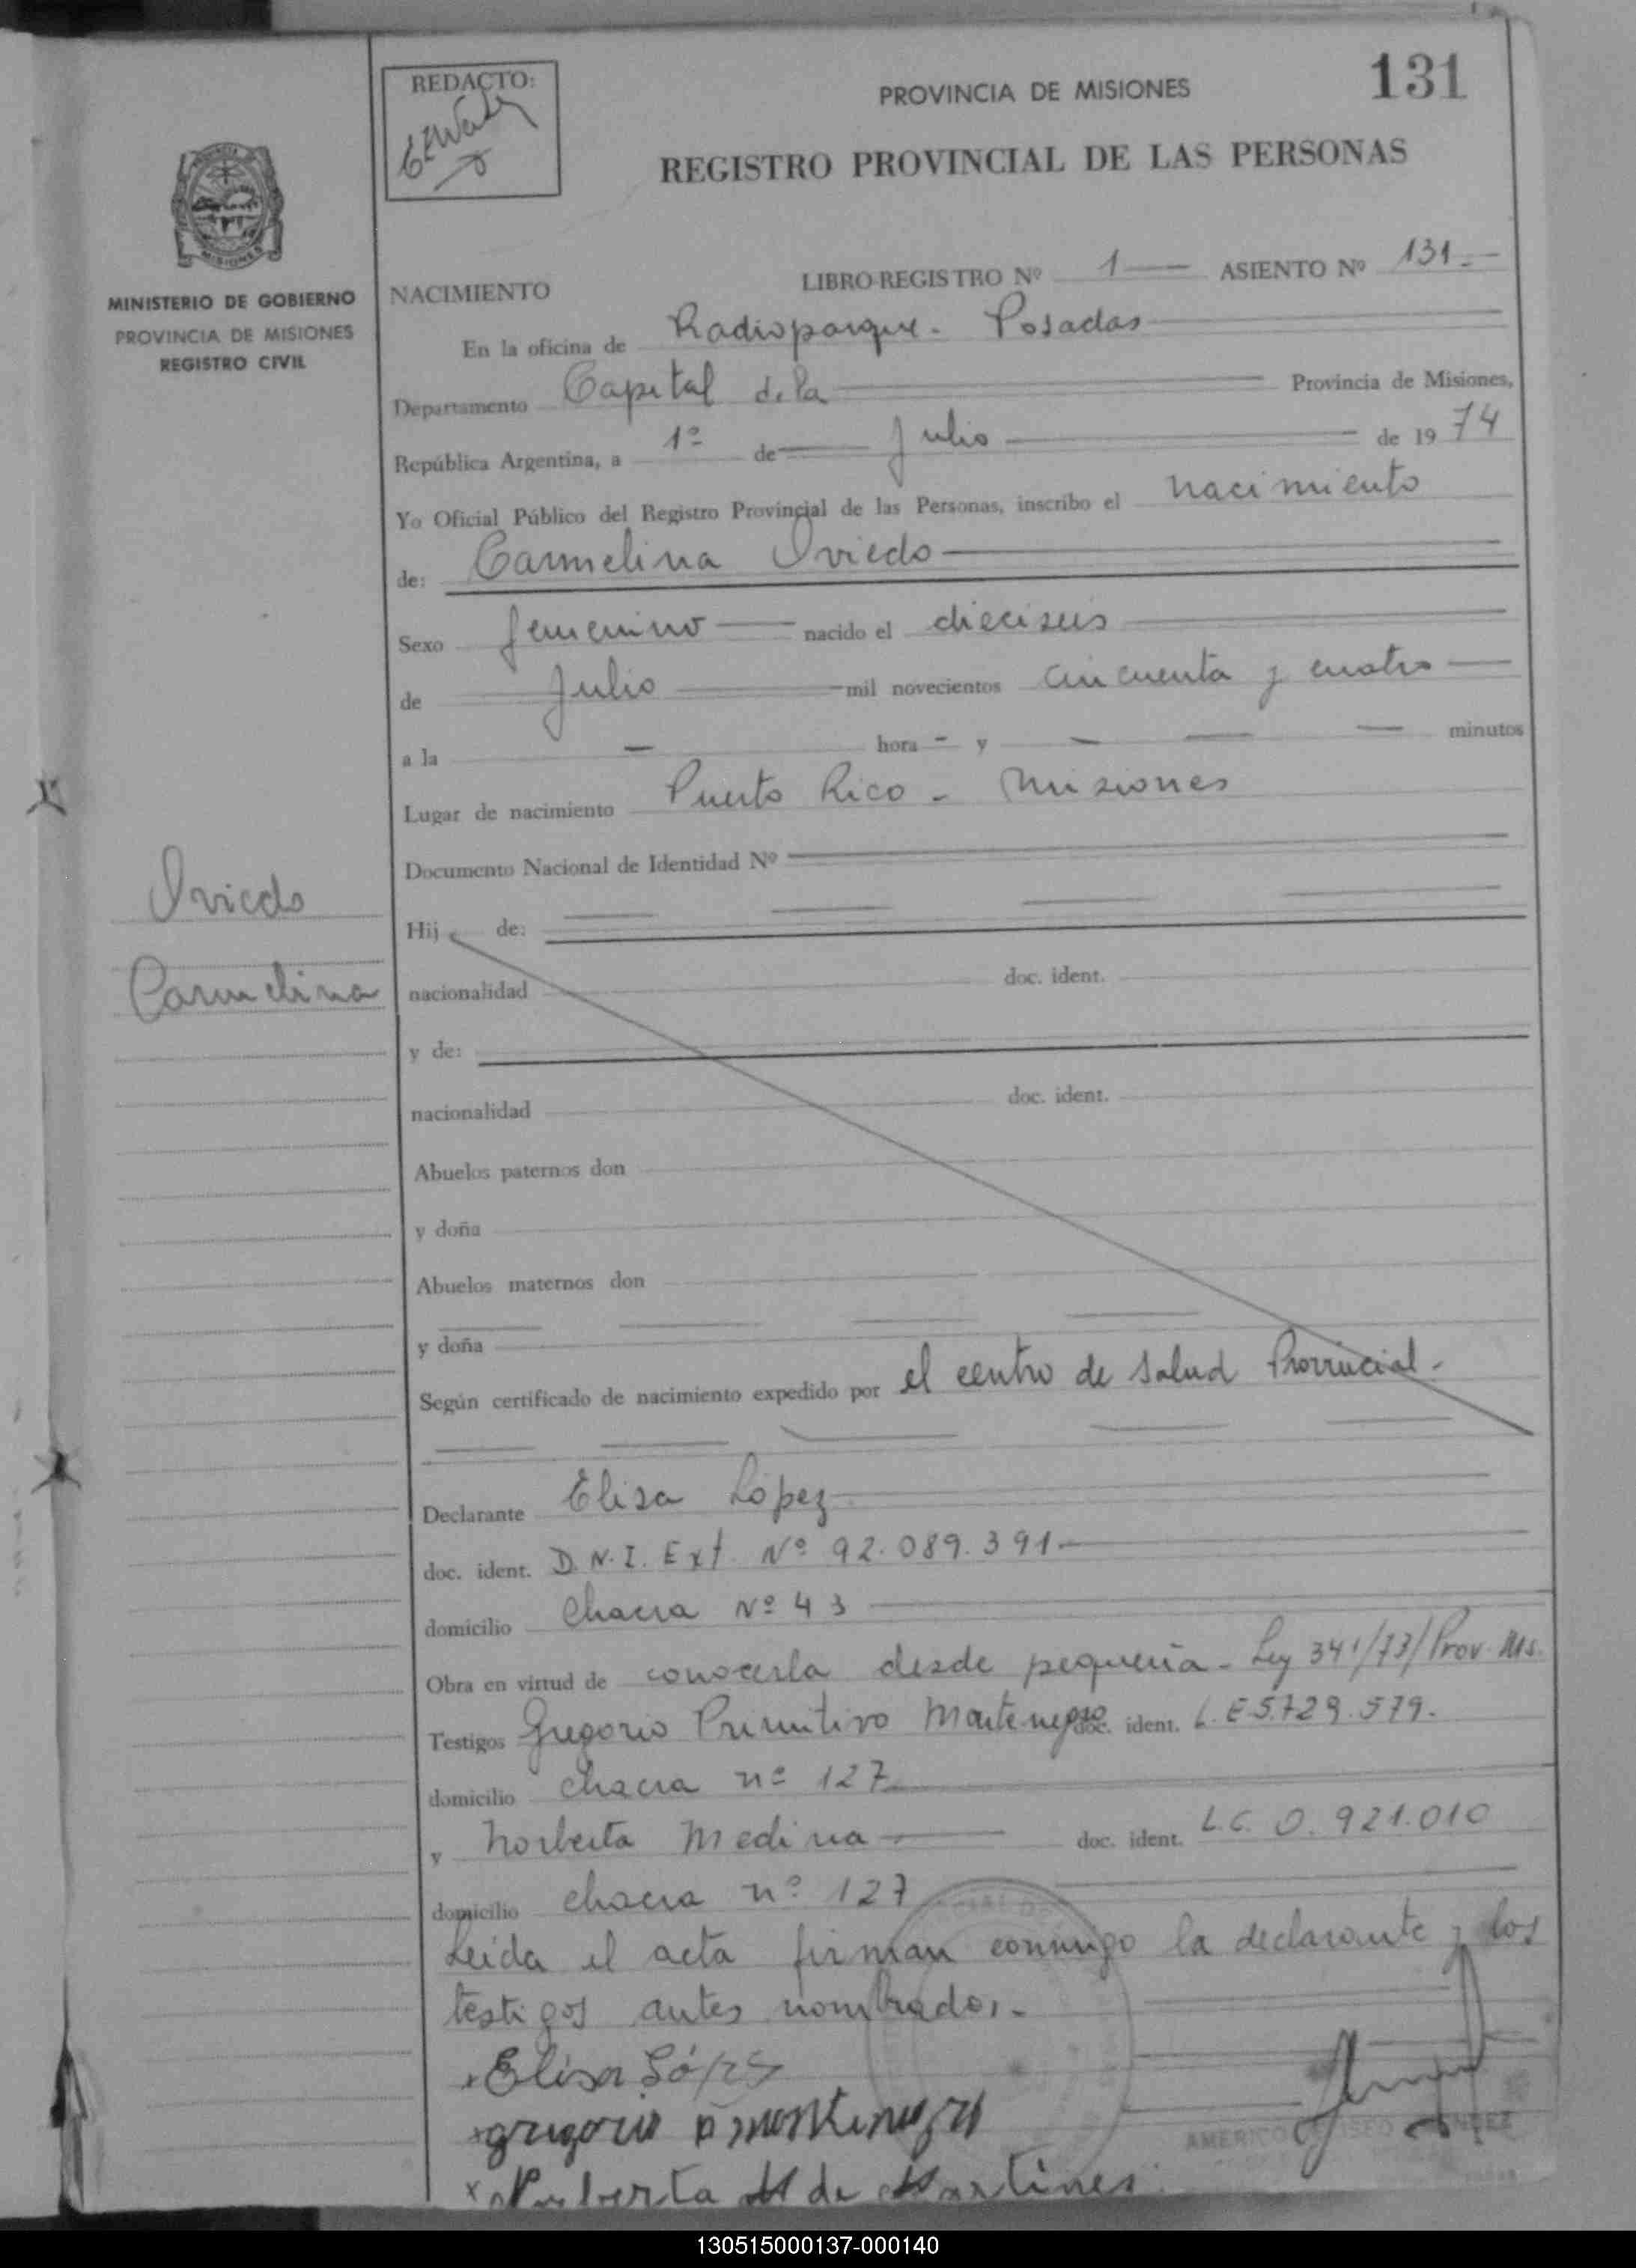 REDACTO:
PROVINCIA DE MISIONES
131
REGISTRO PROVINCIAL DE LAS PERSONAS
MISIONES
MINISTERIO DE GOBIERNO
PROVINCIA DE MISIONES
REGISTRO CIVIL
NACIMIENTO LIBRO-REGISTRO Nº 1 ASIENTO Nº 131.-
En la oficina de Radioparque - Posadas
Departamento Capital de la Provincia de Misiones,
República Argentina, a 1º de Julio de 1974
Yo Oficial Público del Registro Provincial de las Personas, inscribo el nacimiento
de: Carmelina Oviedo
Sexo femenino nacido el dieciseis
de Julio mil novecientos cincuenta y cuatro
a la - hora - y - minutos
Lugar de nacimiento Puerto Rico - Misiones
Documento Nacional de Identidad Nº
Oviedo
Carmelina
Hij de:
nacionalidad doc. ident.
y de:
nacionalidad doc. ident.
Abuelos paternos don
y doña
Abuelos maternos don
y doña
Según certificado de nacimiento expedido por el centro de salud Provincial.-
Declarante Elisa López
doc. ident. D.N.I. Ext. Nº 92.089.391.-
domicilio Chacra Nº 43
Obra en virtud de conocerla desde pequeña - Ley 341/73/Prov. Ms.
Testigos Gregorio Primitivo Montenegro doc. ident. L.E 5.729.579.
domicilio chacra nº 127
y Norberta Medina doc. ident. L.C. 0.921.010
domicilio chacra nº 127
Leida el acta firman conmigo la declarante y los
testigos antes nombrados.-
x Elisa López
x gregorio p montenegro
x Norberta M de Martines
AMERICO
130515000137-000140